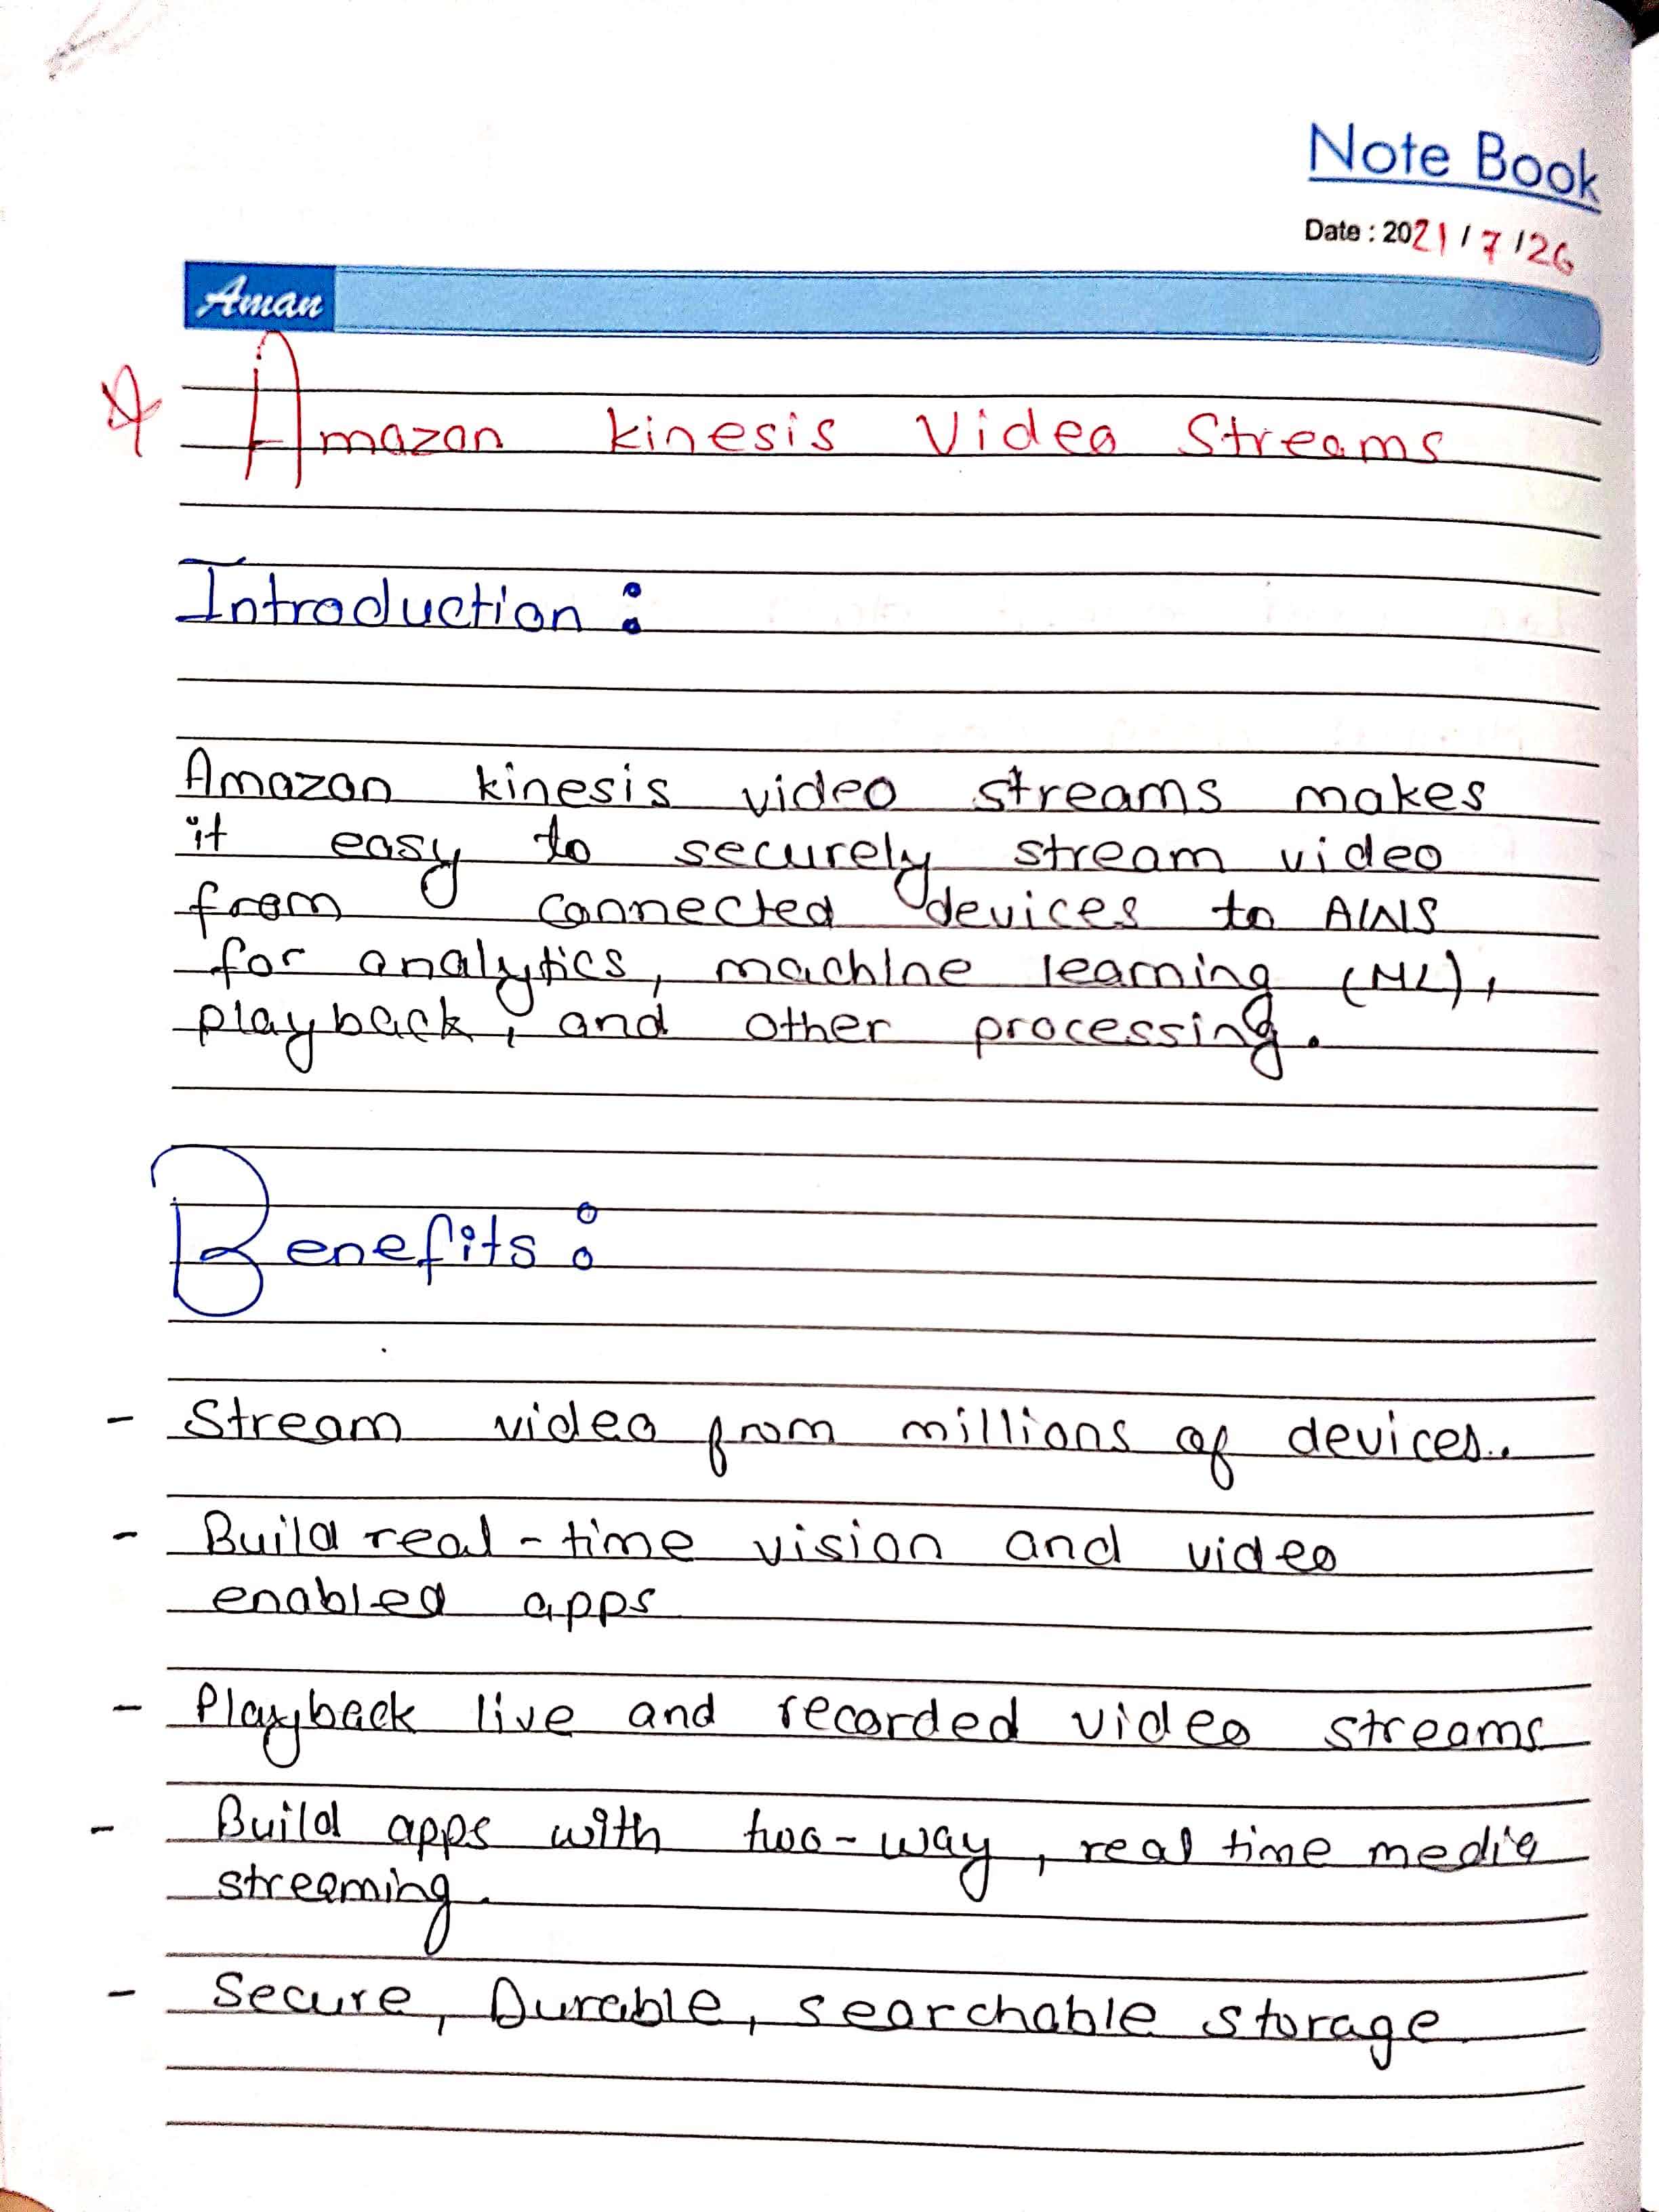 Note Book
Date : 2021/7/26
Aman
Amazon kinesis Video Streams
Introduction :
Amazon kinesis video streams makes
it easy to securely stream video
from connected devices to AWS
for analytics, machine learning (ML),
playback, and other processing.
Benefits :
- Stream video from millions of devices.
- Build real-time vision and video
enabled apps
- Playback live and recorded video streams
- Build apps with two-way, real time media
streaming.
- Secure, Durable, searchable storage